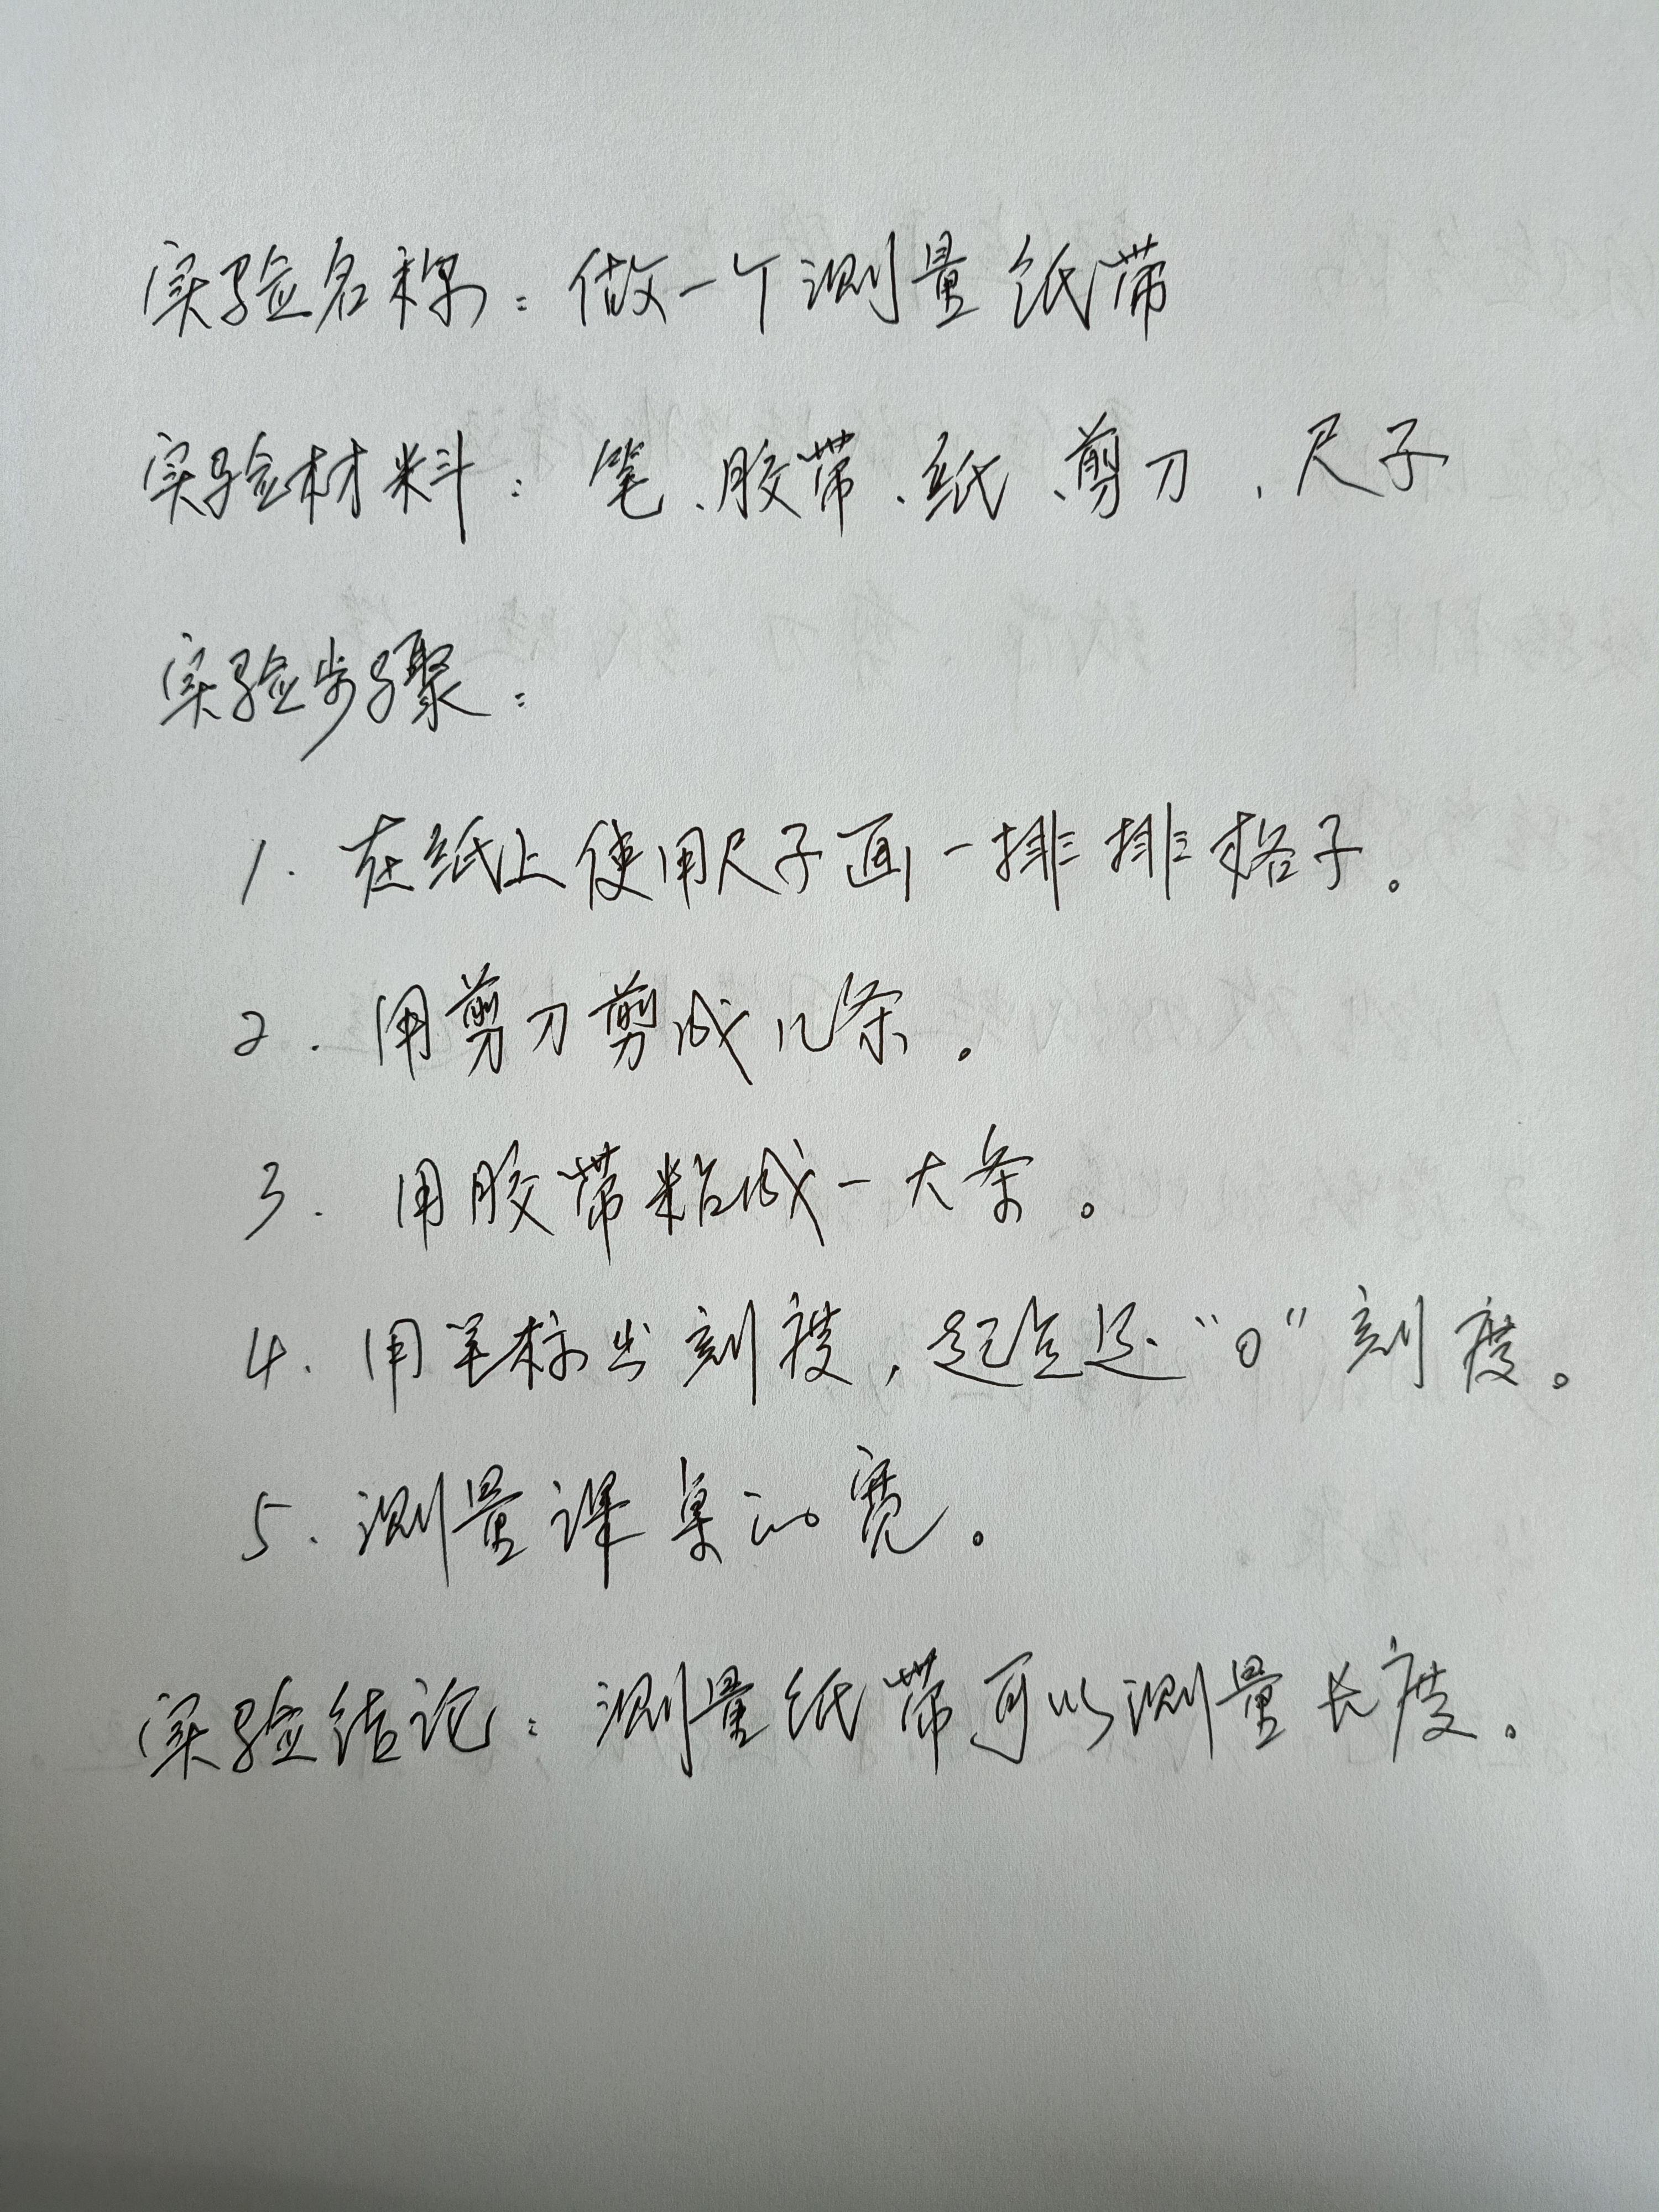 实验名称：做一个测量纸带
实验材料：笔、胶带、纸、剪刀、尺子
实验步骤：
1. 在纸上使用尺子画一排排格子。
2. 用剪刀剪成几条。
3. 用胶带粘成一大条。
4. 用笔标出刻度，起点是“0”刻度。
5. 测量课桌的宽。
实验结论：测量纸带可以测量长度。